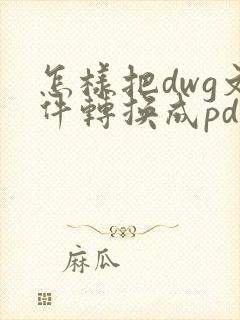 怎樣把dwg文
件轉換成pd
麻瓜